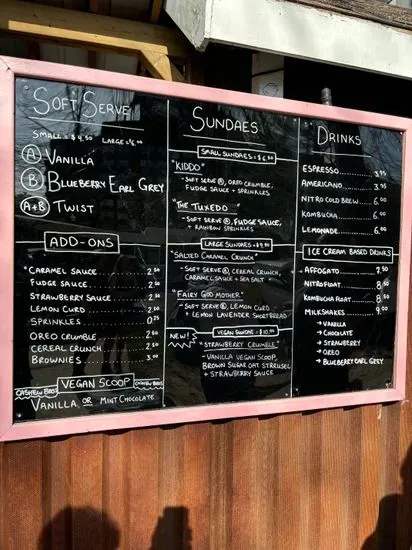 SOFT SERVE
SMALL = $4.50 LARGE = $6.00
A VANILLA
B BLUEBERRY EARL GREY
A+B TWIST
ADD-ONS
CARAMEL SAUCE 2.50
FUDGE SAUCE 2.50
STRAWBERRY SAUCE 2.50
LEMON CURD 2.50
SPRINKLES
OREO CRUMBLE 2.50
CEREAL CRUNCH 2.50
BROWNIES 3.00
CASHEW BASED VEGAN SCOOP CASHEW BASED
VANILLA OR MINT CHOCOLATE
SUNDAES
SMALL SUNDAES = $6.50
"KIDDO"
- SOFT SERVE A, OREO CRUMBLE,
FUDGE SAUCE + SPRINKLES
"THE TUXEDO"
- SOFT SERVE A, FUDGE SAUCE,
+ RAINBOW SPRINKLES
LARGE SUNDAES = $9.50
"SALTED CARAMEL CRUNCH"
- SOFT SERVE A, CEREAL CRUNCH,
CARAMEL SAUCE + SEA SALT
"FAIRY GOD MOTHER"
- SOFT SERVE B, LEMON CURD
+ LEMON LAVENDER SHORTBREAD
NEW! VEGAN SUNDAE = $10.00
"STRAWBERRY CRUMBLE"
- VANILLA VEGAN SCOOP,
BROWN SUGAR OAT STREUSEL
+ STRAWBERRY SAUCE
DRINKS
ESPRESSO 3.75
AMERICANO 3.95
NITRO COLD BREW 6.00
KOMBUCHA 6.00
LEMONADE 6.00
ICE CREAM BASED DRINKS
AFFOGATO 7.50
NITRO FLOAT 8.50
KOMBUCHA FLOAT 8.50
MILKSHAKES 9.00
→ VANILLA
→ CHOCOLATE
→ STRAWBERRY
→ OREO
→ BLUEBERRY EARL GREY